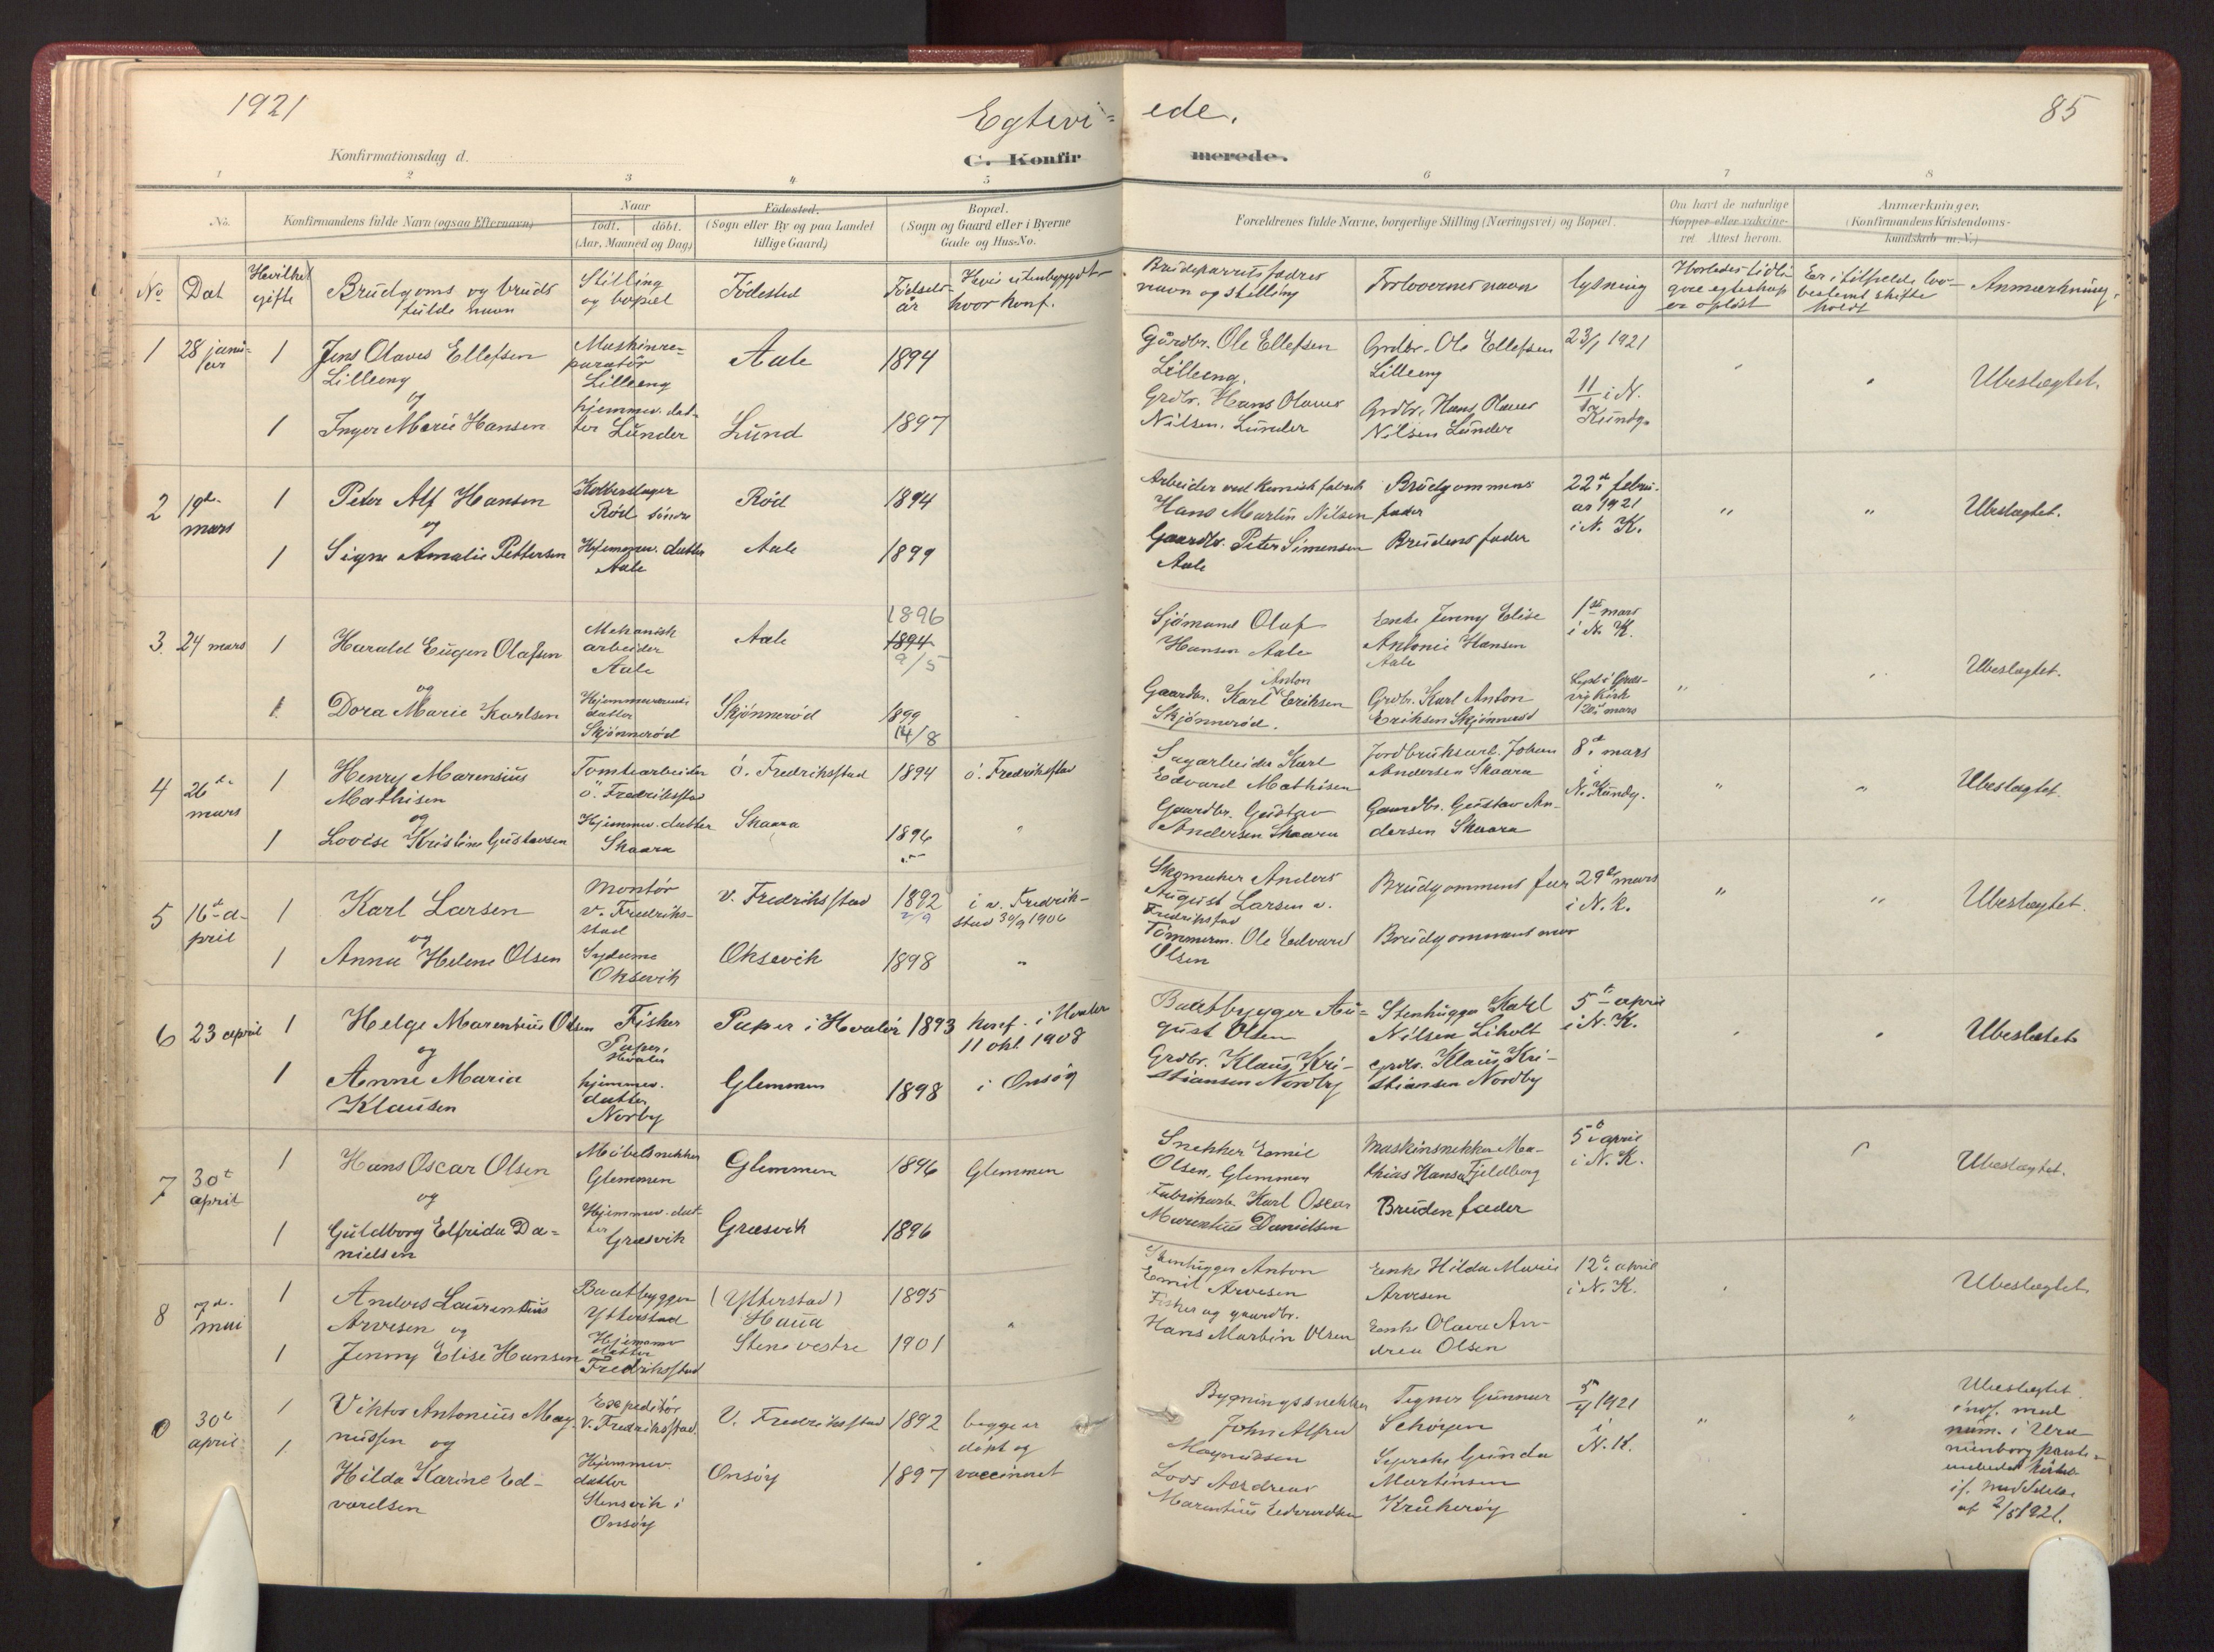 1921
Egtevi=
ede.
85
Konfirmationsdag d.
C. Konfir
merede.
1 2 3 4 5 6 7 8
No. Konfirmandens fulde Navn (ogsaa Efternavn)
Naar
født. døbt.
(Aar, Maaned og Dag)
Födested.
(Sogn eller By og paa Landet
tillige Gaard)
Bopæl.
(Sogn og Gaard eller i Byerne
Gade og Hus-No.
Forældrenes fulde Navne, borgerlige Stilling (Næringsvei) og Bopæl.
Om havt de naturlige
Kopper eller vakcine-
ret Attest herom.
Anmærkninger,
(Konfirmandens Kristendoms-
kundskab m. V.)
No Dat Hvilket
gifte
Brudgoms og bruds
fulde navn
Stilling
og bopæl
Födested
Födsels-
år
Hvis utenbygds
hvor konf.
Brudeparrets fædres
navn og stilling
Forlovernes navne
lysning
Hvorledes tidli-
gere egteskap
er opløst
Er i tilfælde lov-
bestemt skifte
holdt
Anmærkning.
1 28 janu-
ar
1
Jens Olaves Ellefsen
Lilleeng
og
Maskinre-
paratör
Lilleeng
Aale
1894
1
Inger Marie Hansen
hjemmev. dat-
ter Lunder
Lund
1897
Gårdbr. Ole Ellefsen
Lilleeng.
Grdbr. Hans Olaves
Nilsen. Lunder
Grdbr. Ole Ellefsen
Lilleeng
Grdbr. Hans Olaves
Nilsen Lunder
23/1 1921
i N.
Ubeslegtet.
2 19de
mars
1
Peter Alf Hansen
og
Kobberslager
Röd söndre
Röd
1894
1
Signe Amalie Pettersen
Hjemmev. datter
Aale
Aale
1899
Arbeider ved kemisk fabrik
Hans Martin Nilsen
Gaardbr. Peter Simensen
Aale
Brudgommens
fader
Brudens fader
22de febru-
ar 1921
i N. K.
" "
Ubeslegtet.
3. 24 mars
1
Harald Eugen Olafsen
og
Mekanisk
arbeider
Aale
Aale
1896
1894
9/5
1.
Dora Marie Karlsen
Hjemmeværende
datter
Skjönneröd
Skjönneröd
1899
14/8
Sjömand Oluf
Hansen Aale
Anton
Gaardbr. Karl Eriksen
Skjönneröd.
Enke Jenny Elise
Antonie Hansen
Aale
Grdbr. Karl Anton
Eriksen Skjönneröd
1ste mars
i N. K.
Lyst i Græs-
vig Kirke
20de mars
"
Ubeslegtet.
4 26de
mars
1
Henry Marensius
Mathisen
og
Tomtearbeider
ö. Fredriksstad
ö. Fredriksstad
1894
ö. Fredriksstad
1
Lovise Kristine Gustavsen
Hjemmev. datter
Skaara
Skaara
1896
"
Sagarbeider Karl
Edvard Mathisen
Gaardbr. Gustav
Andersen Skaara
Jordbruksarb. Johan
Andersen Skaara
Gaardbr. Gustav An-
dersen Skaara
8de mars
i
N. Kundg.
" "
Ubeslegtet.
5 16de a-
pril
1
Karl Larsen
og
Montör
v. Fredriks-
stad
v. Fredriksstad
1892
2/9
i v. Fredrik-
stad 30/9 1906
1
Anna Helene Olsen
Sydame
Oksevik
Oksevik
1898
"
Skomaker Anders
August Larsen v.
Fredriksstad
Tömmerm. Ole Edvard
Olsen
Brudgommens far
Brudgommens mor
29de mars
i N. K.
" "
Ubeslegtet.
6 23 april
1
Helge Marentius Olsen
og
Fisker
Paper,
Hvaler
Paper i Hvaler
1893
konf. i Hvaler
11 okt. 1908
1
Anne Maria
Klausen
hjemmev.
datter
Norby
Glemmen
1898
i Onsöy
Baatbygger Au=
gust Olsen
Grdbr. Klaus Kri-
stiansen Nordby
Stenhugger Karl
Nilsen Liholt
Grdbr. Klaus Kri-
stiansen Nordby
5te april
i N. K.
Ubeslætet
7 30te
april
1
Hans Oscar Olsen
og
Möbelsnekker
Glemmen
Glemmen
1896
Glemmen
1
Guldborg Elfrida Da=
nielsen
Hjemmev. dat-
ter Græsvik
Græsvik
1896
Snekker Emil
Olsen, Glemmen
Fabrikarb. Karl Oscar
Marentius Danielsen
Maskinsnekker Ma-
thias Hansen Fjeldberg
Bruden fader
5te april
i N. K.
Ubeslegtet.
8 7de
mai
1
Anders Laurentius
Arvesen og
Baatbygger
Ytterstad
(Ytterstad)
Haua
1895
1
Jenny Elise Hansen
Hjemmev
datter
Fredriksstad
Stene vestre
1901
"
Stenhugger Anton
Emil Arvesen
Fisker og gaardbr.
Hans Martin Olsen
Enke Hilda Marie
Arvesen
Enke Olava An-
drea Olsen
12te april
i N. K.
Ubeslegtet.
0 30te
april
1
Viktor Antonius Mag-
nussen og
Expeditör
V. Fredriksstad.
V. Fredriksstad
1892
begge er
döpt og
vaccineret
1
Hilda Karine Ed-
vardsen
Hjemmev.
datter
Stensvik i
Onsöy
Onsöy
1897
Bygningssnekker
John Alfred
Magnussen
Lods Andreas
Marentius Edvardsen
Tegner Gunnar
Schörgen
Syerske Gunda
Martinsen
Kråkeröy
5/4 1921
i
N. K.
" "
Ubeslegtet.
num. i Ura-
nienborg
if. meddelelse
af 2/5 1921.